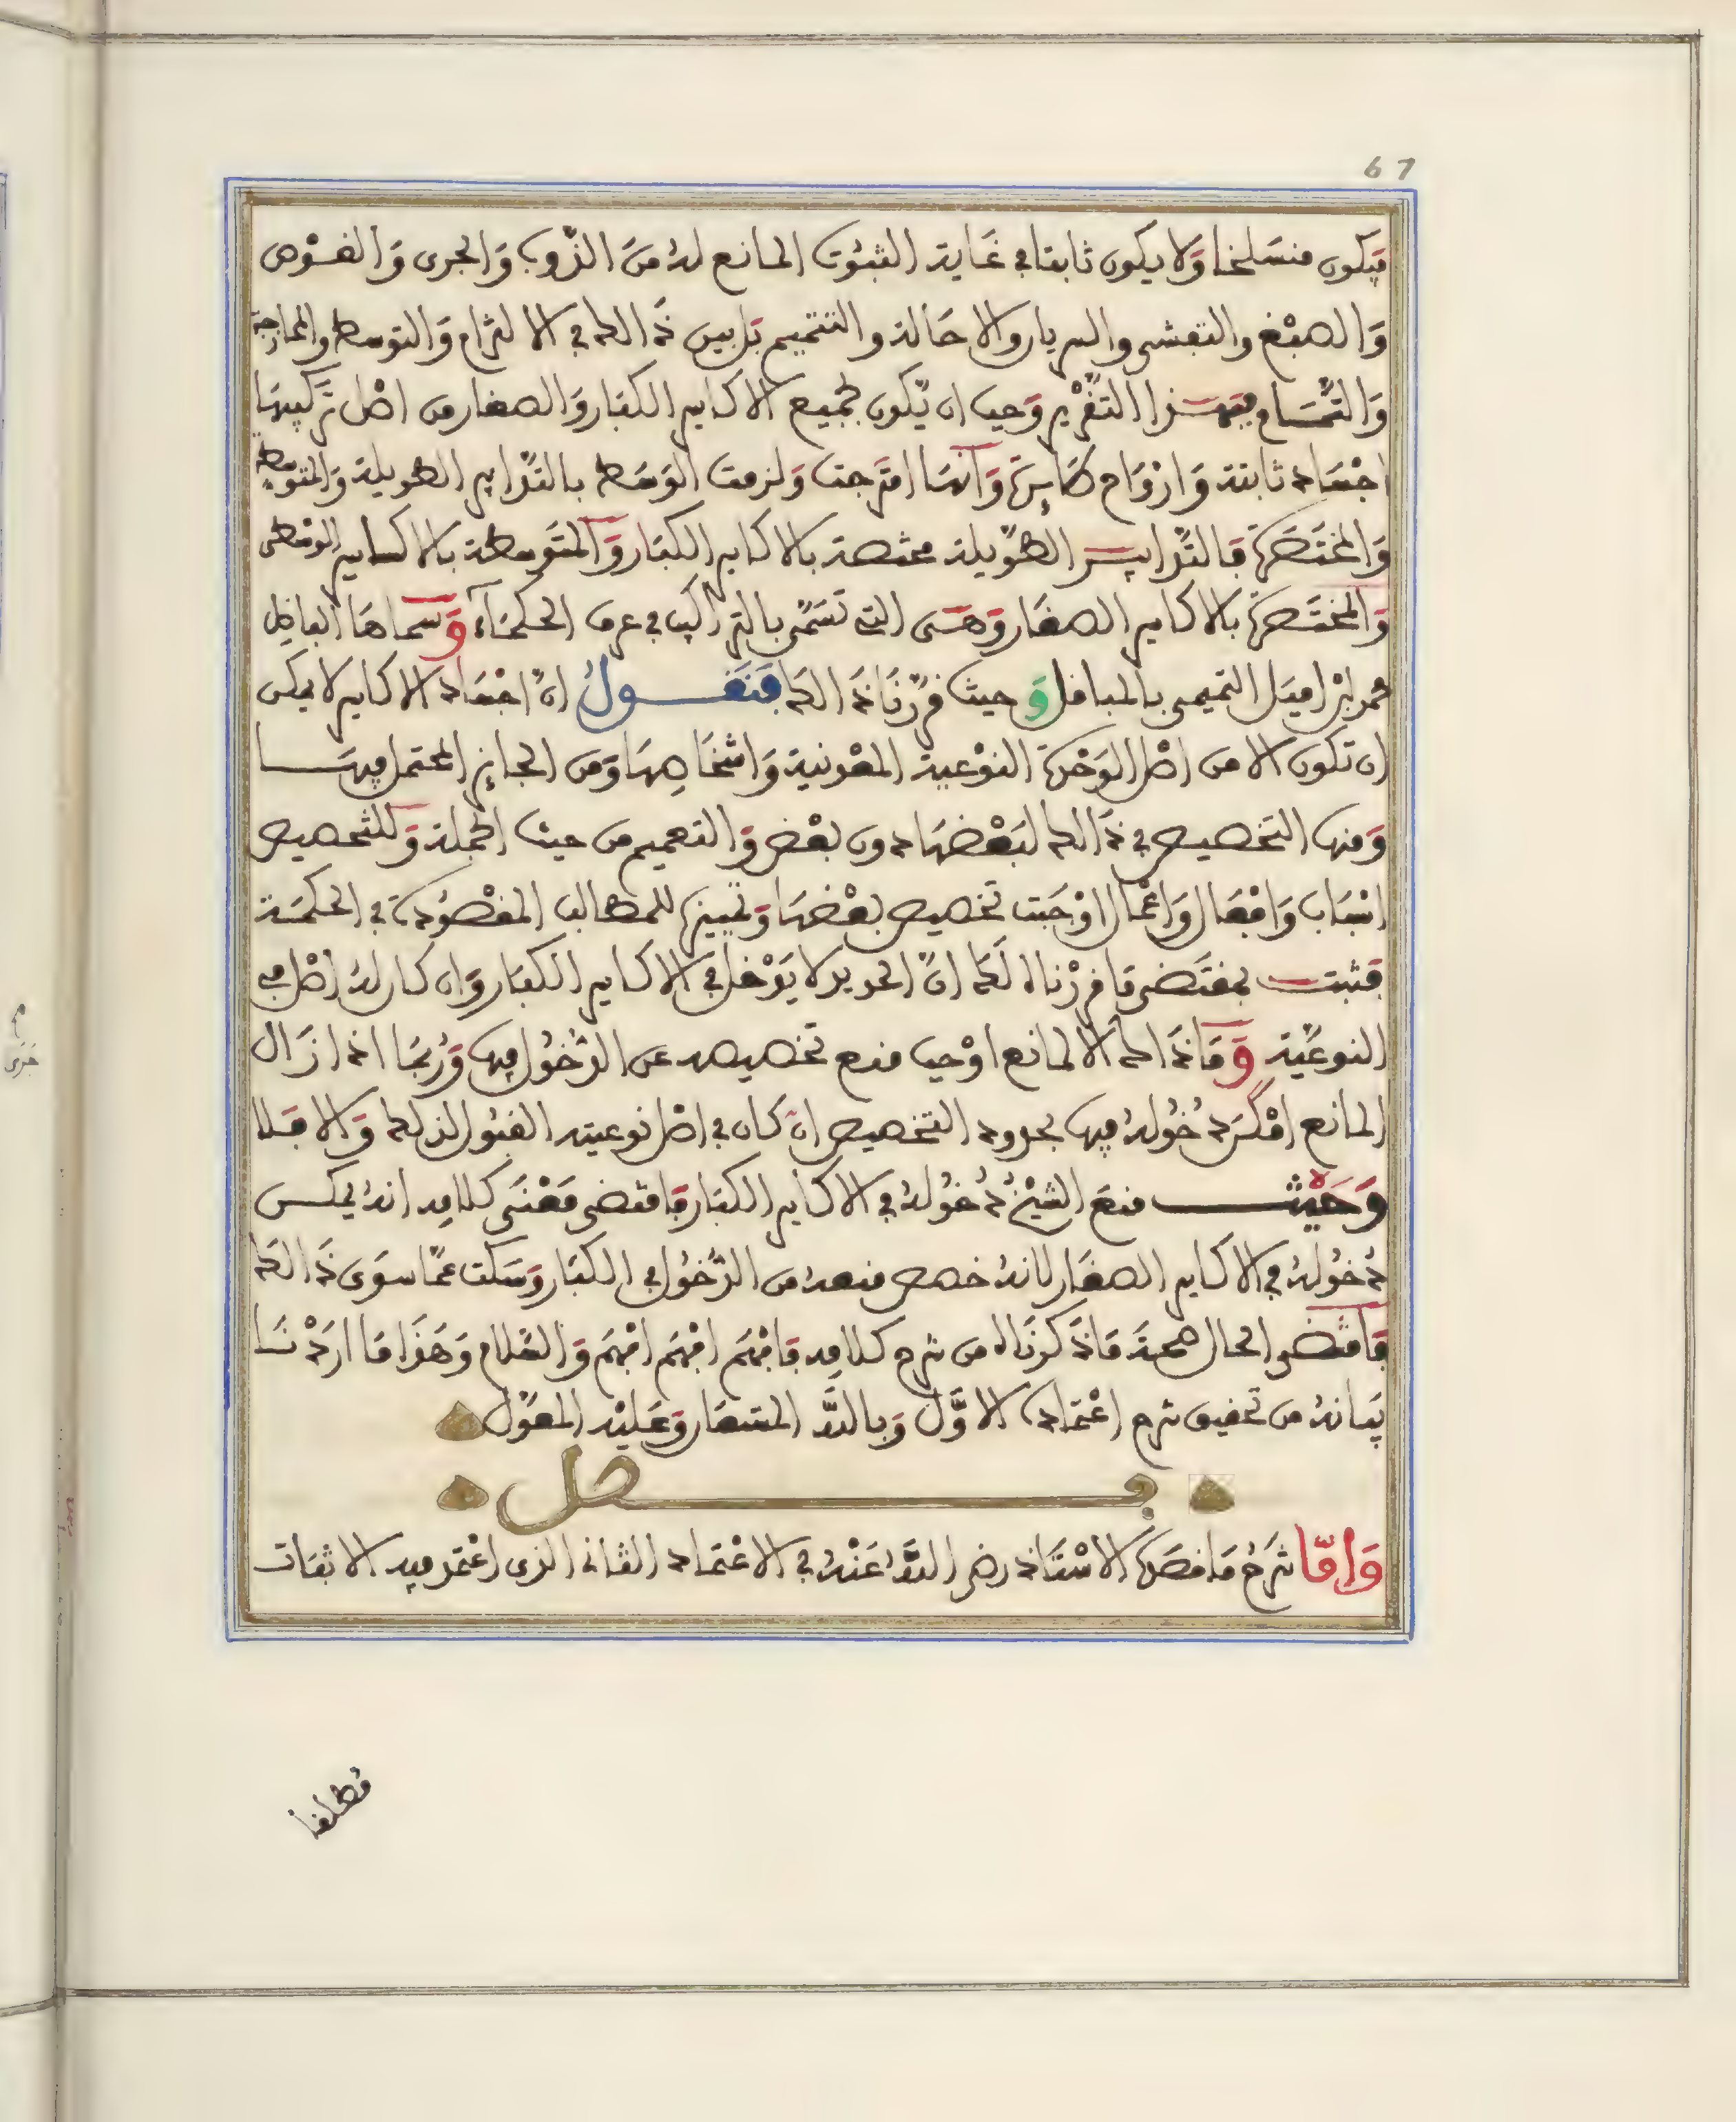 67
فيكون منسلخا وَلا يكون ثابتا في غَاية الثبُوت المانع لهُ منَ الذّوب وَالجرى وَالغَوْص
وَالصبْغ والتفشى والسريان والاحَالة والتتميم بَل بين ذَالك في الالتزام وَالتوسط والممازجة
وَالتّمَام فبهـذا التقْرير وَجب ان يّكون لجميع الاكاسير الكبَار وَالصغار من اصْل تركيبهَا
اجْسَاد ثابتة وَارْوَاح صَابرَة وَانهَا امتَزجت وَلزمت الوَسَط بالتّدابير الطويلة وَالمتوسطة
وَالمختَصَرة فَالتّدابيـر الطّويلة مختصة بالاكاسير الكبَار وَالمتَوسطة بالاكسَاير الوسْطى
وَالمختَصَرة بالاكاسير الصغَار وَهـى التى تسَمّى بالتراكيب في عرف الحكمَاء وَسماهَا الفاضِل
محمد ابْن اميَل التميمى بالمباقل وَحيث قرّرْنَا ذَالك فَنَقـول انّ اجْسَاد الاكاسير لا يمكن
ان تكون الا من اصْل الوَحْدَة النوْعية المعْدنية وَاشخَاصِهَا وَمن الجائز المحتمل فيهَـا
وَمنها التخصيص في ذَالك لبَعْضهَا دون بعْض وَالتعميم من حيث الجملة وَللتخصيص
اسْبَاب وَافعَال وَاعْمال اوْجَبت تخصيص بعْضهَا وَتمييزها للمطالب المقصُودَة في الحكمَة
فثبت بمقتَضى مَا قررْناه لَك انّ الحديد لا يَدْخل في الاكاسير الكبَار وَان كان لهُ اصْل في
النوعيّة وَمَا ذَاك الا لمانع اوْجب منع تخصيصه عن الدّخُول فيها وَرُبمَا اذا زَال
المانع امْكنَ دُخُولهُ فيها بحدود التخصيص انْ كان في اصْل نوعيته القبُول لذلك وَالا فَلا
وَحَيْثـــ منعَ الشيْخُ دُخُولهُ في الاكاسير الكبَار فَاقتضى مَعْنَى كلامِه انهُ يمكـن
دُخُولهُ في الاكاسير الصغَار لانهُ خصص منعهُ من الدّخُول في الكبَار وَسَكت عمّا سوَى ذَالك
فَاقتضى الحال صحةَ مَا ذَكرنَاه من شرح كلامِه فَافْهَم افْهَم افْهَم وَالسّلام وَهَذَا مَا ارَدْنـَا
بيَانهُ من تحقيق شرح اعْتمَاده الاوَّل وَباللَّه المستعَان وَعَليْه المعَوّل
فـــصل
وَامّا شَرْحُ مَا قصَدَهُ الاسْتَاذ رضى اللَّهُ عَنْهُ في الاعْتمَاد الثانى الذى اعْتمَد فيه الاثبَات
مُطلقا